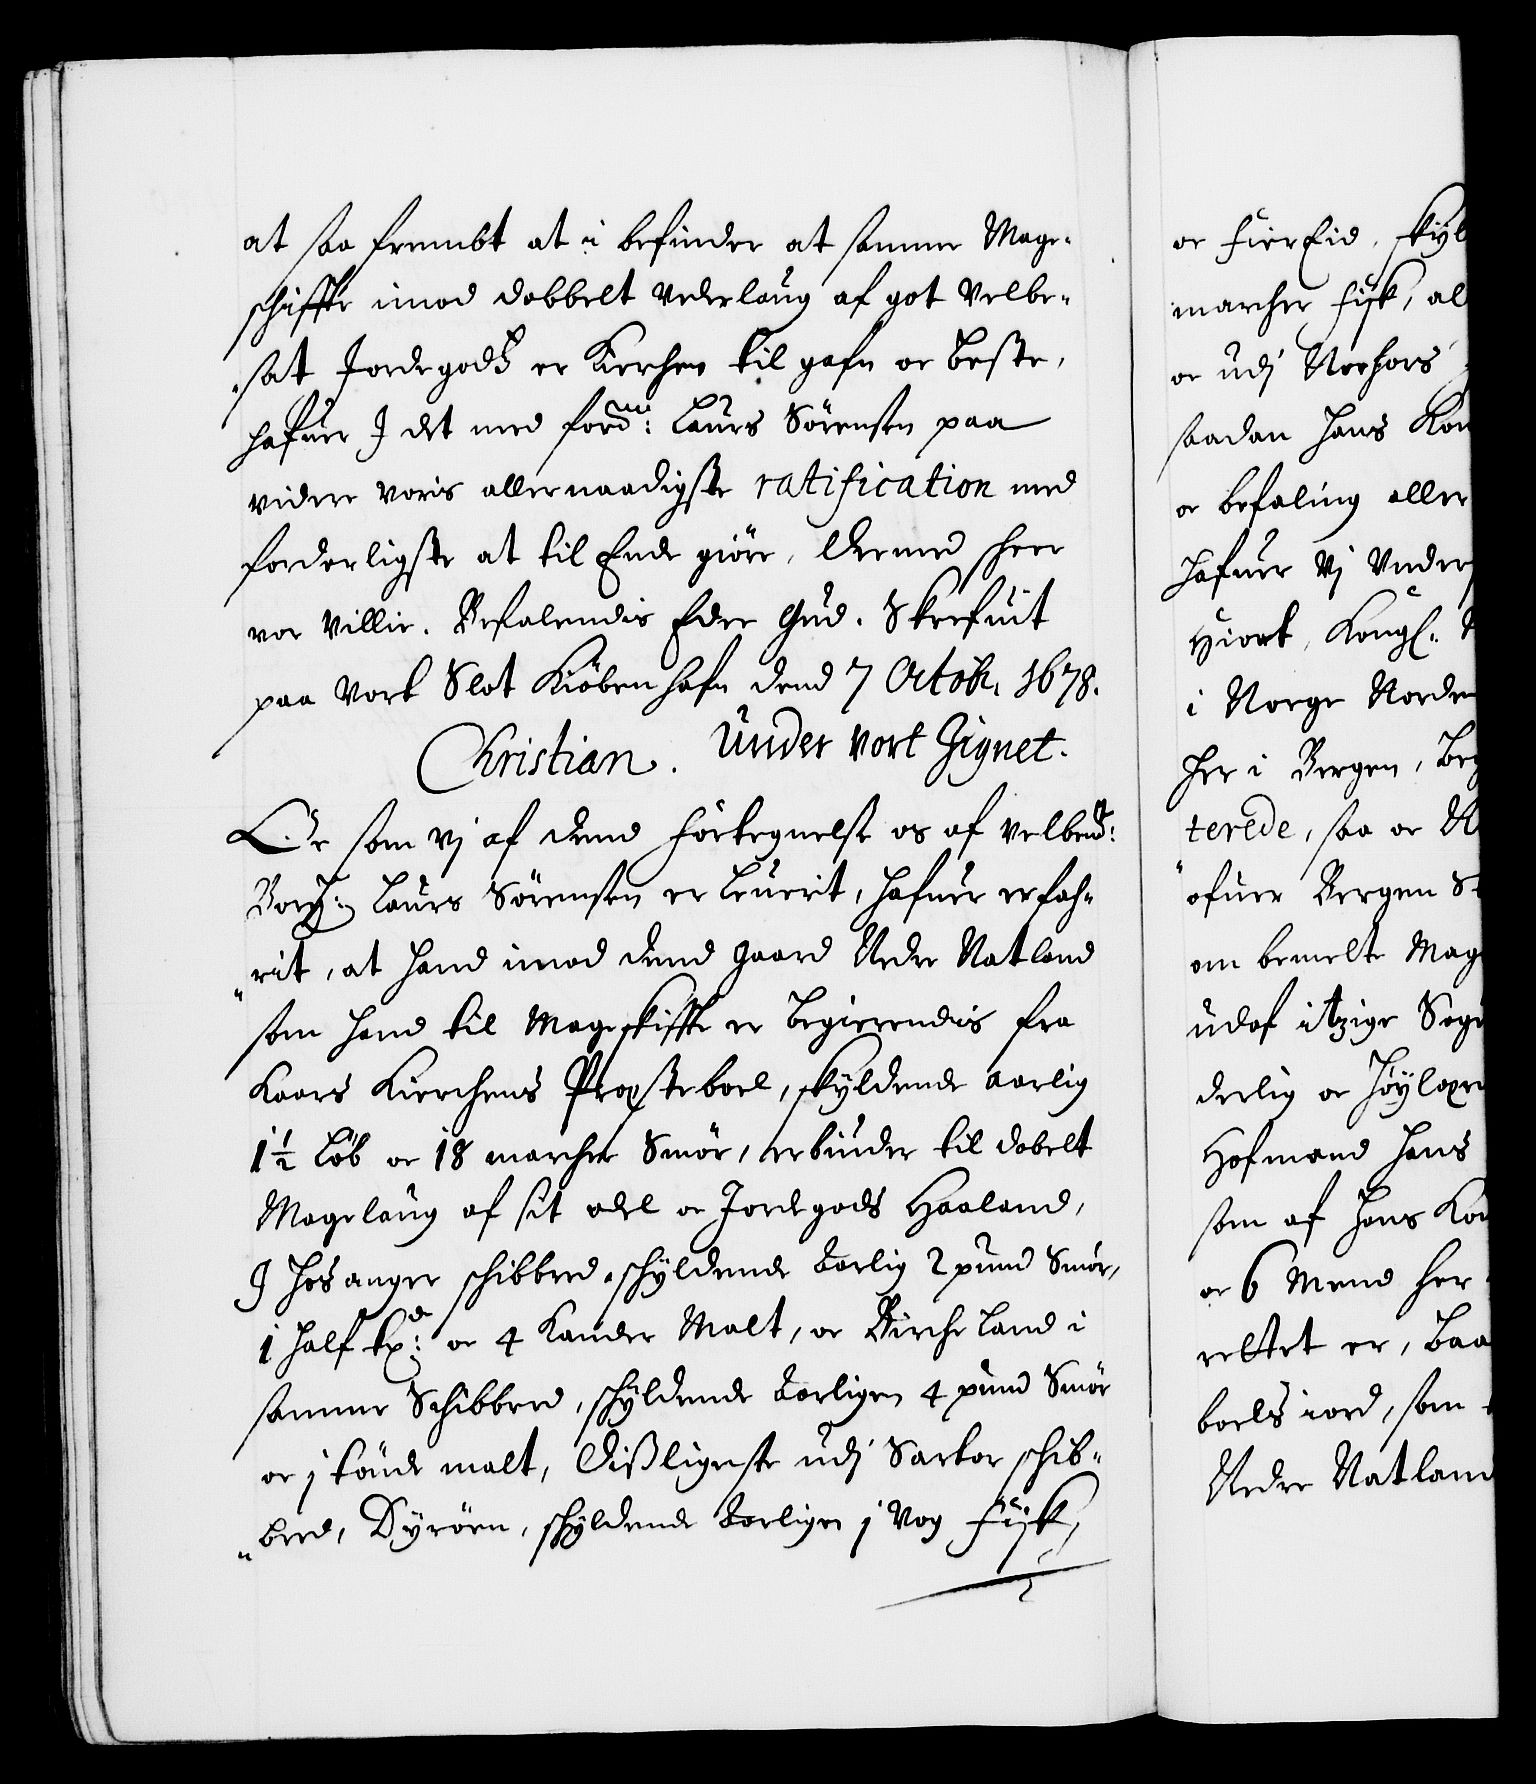 at saa frembt at i befinder at samme Mage-
schiffte imod dobbelt Vederlaug af got Velbe-
sat Jordegodtz er Kirchen til gafn oc beste,
hafuer I det med forn: Laurs Sörensen paa
videre voris allernaadigste ratification med
forderligste at til Ende giöre, Dermed skeer
vor Villie. Befalendis Eder Gud. Skrefuit
paa Vort Slot Kiöbenhafn dend 7 Octobr. 1678.
Christian. Under Vort Zignet.
Da som vi af dend Fortegnelse os af velbemt:
Borgr: Laurs Sörensen er leuerit, hafuer erfah-
rit, at hand imod dend Gaard Nedre Natland
som hand til Mageskiffte er begierendis fra
Kaars Kierchens Prousteboel, skyldende aarlig
1½ Löb oc 18 marcher Smör, erbiuder til dobelt
Magelaug af sit odel oc Jordegods Haaland,
I Hosanger schibbred, schyldende aarlig 2 pund Smör,
1 half td: oc 4 Kander Malt, oc Bircheland i
samme Schibbred, schyldende aarligen 4 pund Smör
oc j tönde malt, Dißligeste udj Sartor schib-
bred, Dyröen, schyldende aarligen j Vog Fisk,
oc FierEid, skyl
marcher Fisk, al
oc udj Norhors
saadan Hans Kon
oc befaling aller
Hafuer Vi Under
Hiort, Kongl:
i Norge Norden
her i Bergen, beg
terede, saa oc
ofuer Bergen St
om bemelte Mag
udaf itzige Sogn
derlig oc Höylær
Hofmand Hans
som af Hans Kon
oc 6 Mend her
rettet er, baa
boels iord, som
Nedre Natland